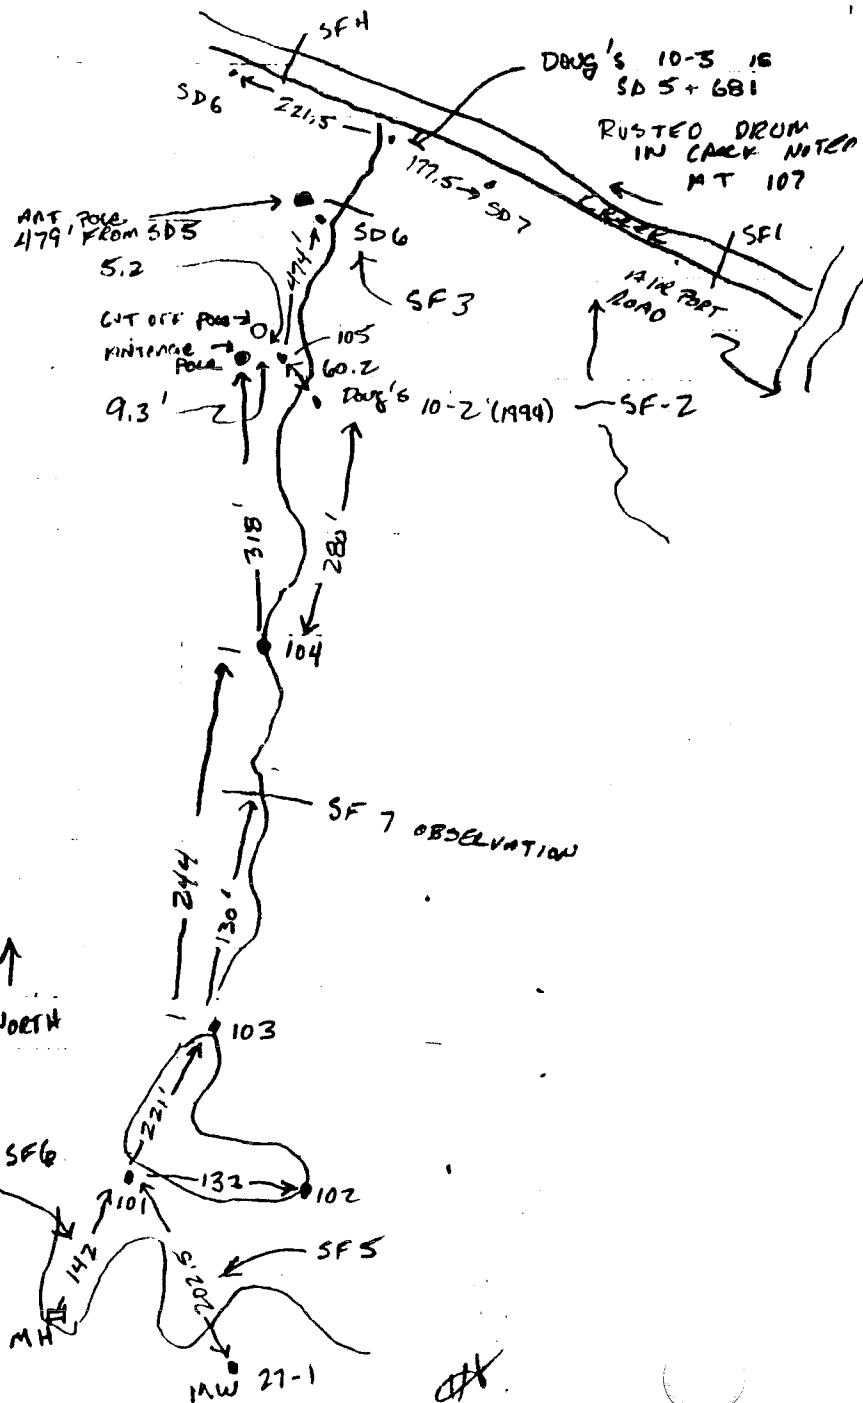 SF4
DOUG'S 10-3 IS
SD 5 + 681
SD6
221.5
RUSTED DRUM
IN CREEK NOTED
AT 107
177.5
SD7
CREEK
SF1
ART POLE
479' FROM SD5
SD6
474'
5.2
SF3
AIRPORT
ROAD
CUT OFF POLE
105
POLE
60.2
9.3'
DOUG'S 10-2 (1994)
SF-2
318'
280'
104
SF 7 OBSERVATION
244
130'
NORTH
103
221'
SF6
133
101
102
142
202.5
SF5
MH
MW 27-1